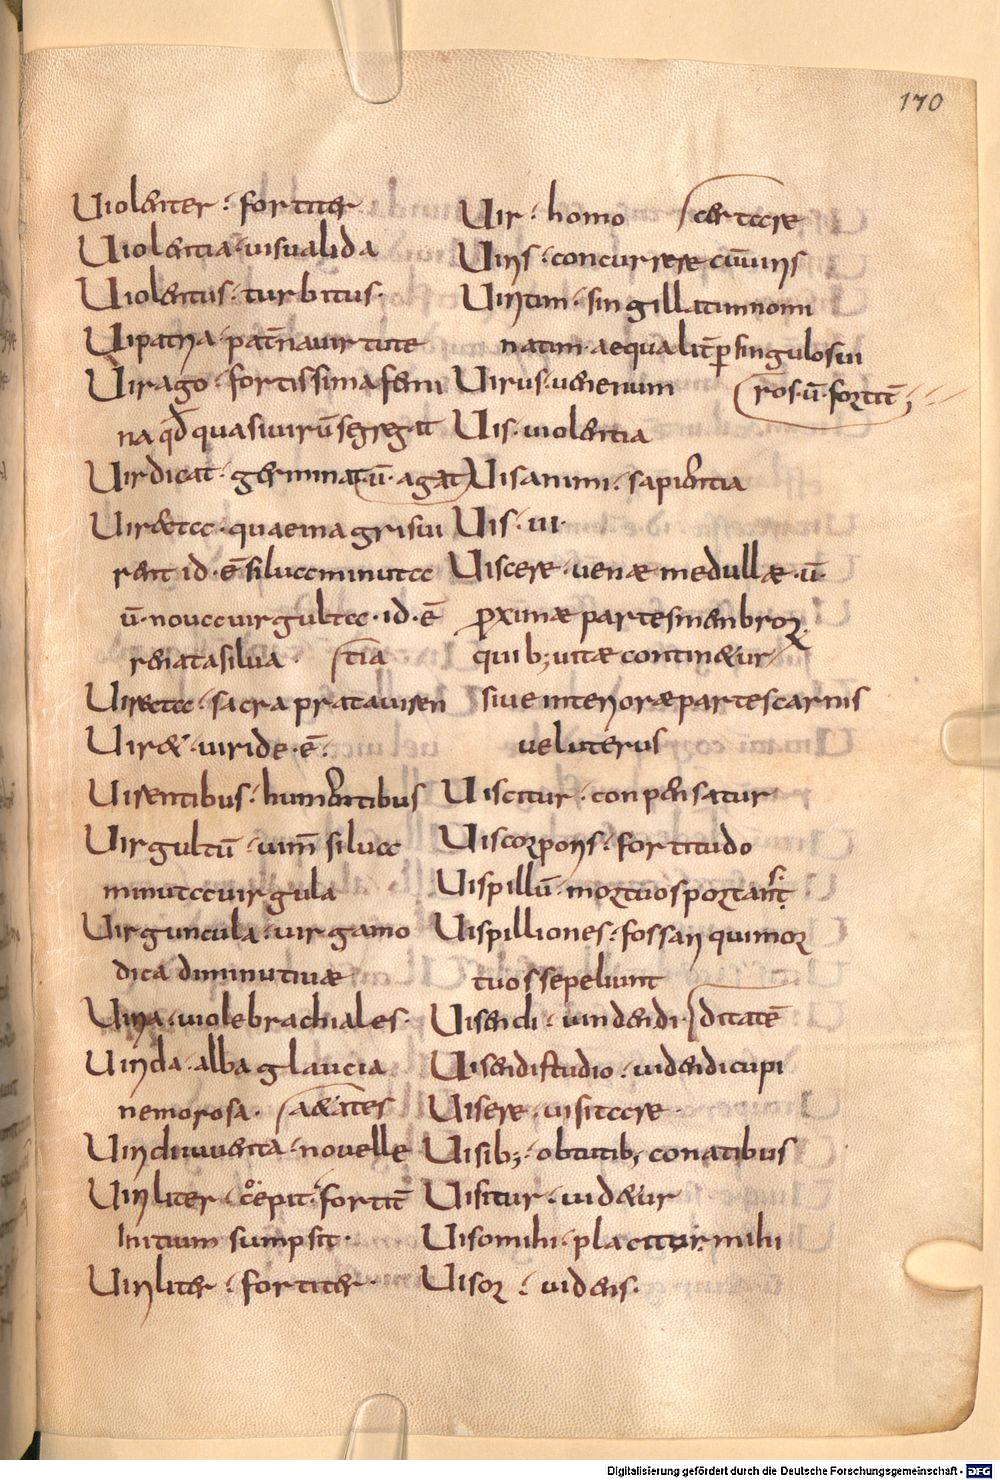 170
Uiolenter· fortiter
Uiolentia· uisualida
Uiolentus· turbitus·
Uipatria· patr̄nauirtute
Uirago· fortissima femi
na qd̄ quasi uirū segregat
Uirdicat· germinat· ū· agat
Uirecta· quae magis ui
rent id· ē silua minuta
ū· noua uirgulta· id· ē
renata silua· tia
Uirecta· sacra prata uiren
Uiret· uiride· ē·
Uirentibus· humentibus
Uirgultū· uim̄ silua
minuta uirgula
Uirguncula· uirga mo
dica diminutiuae
Uiria· uiole brachiales·
Uirida· alba glaucia
nemorosa· aetates
Uiridi iuuenta· nouelle
Uiriliter· cepit· fortit̄
Initium sumpsit·
Uiriliter· fortiter·
Uir· homo certare
Uiris· concurrere cū uiris
Uiritim· singillatim nomi
natim· aequalit̄ p singulos ui
Uirus· uenenum ros· ū· fortit̄
Uis· uiolentia
Uis animi· sapientia
Uis· ui·
Uiscere· uenae medullae· ū·
proximae partes menbroꝝ
quib; uitae continetur
siue interiorae partes carnis
uel uterus
Uiscitur· conpensatur
Uis corporis· fortitudo
Uispillū· mortuos portant
Uispilliones· fossarii qui mor
tuos sepeliunt
Uisendi· uindendi· ditatē
Uisendi studio· uidendi cupi
Uisere· uisitare·
Uisib;· obtutib; conatibus
Uisitur· uidetur
Uiso mihi· placitur mihi
Uisor· uidens·
Digitalisierung gefördert durch die Deutsche Forschungsgemeinschaft - DFG